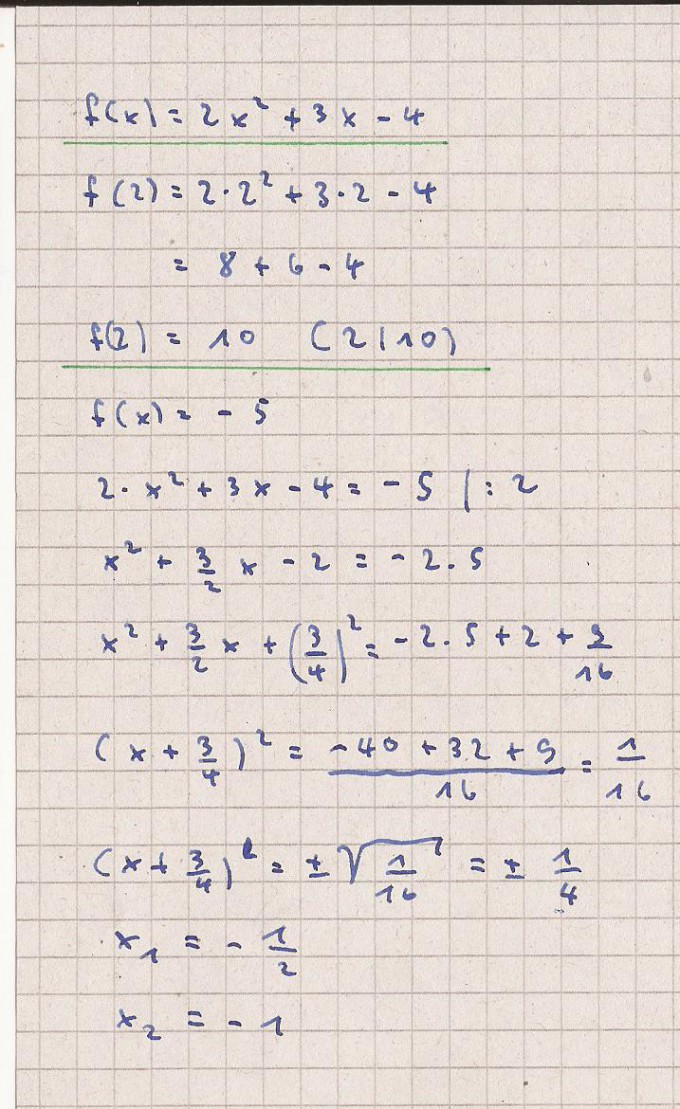 f(x) = 2x² + 3x - 4
f(2) = 2·2² + 3·2 - 4
= 8 + 6 - 4
f(2) = 10 (2|10)
f(x) = - 5
2·x² + 3x - 4 = - 5 |: 2
x² + 3/2 x - 2 = - 2.5
x² + 3/2 x + (3/4)² = - 2.5 + 2 + 9/16
(x + 3/4)² = (-40 + 32 + 9)/16 = 1/16
(x + 3/4)² = ± √(1/16) = ± 1/4
x₁ = - 1/2
x₂ = - 1